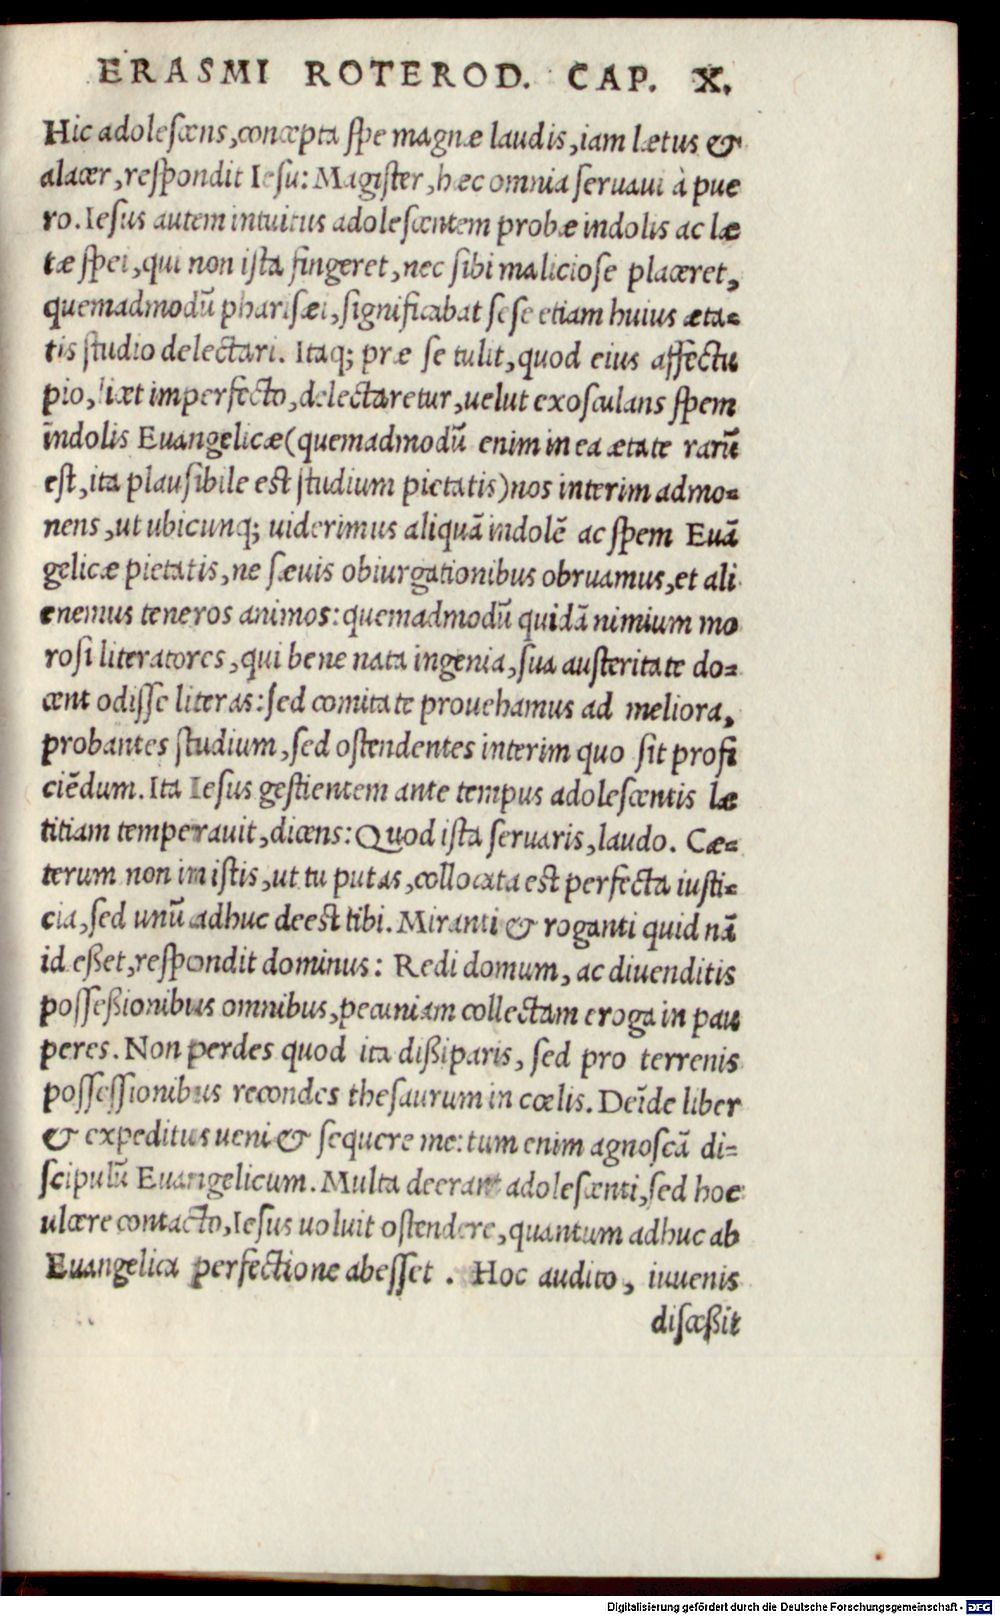 ERASMI ROTEROD. CAP. X.
Hic adoleſcens, concepta ſpe magnæ laudis, iam lætus &
alacer, reſpondit Ieſu: Magiſter, hæc omnia ſeruaui à pue
ro. Ieſus autem intuitus adoleſcentem probæ indolis ac læ
tæ ſpei, qui non iſta fingeret, nec ſibi malicioſe placeret,
quemadmodũ phariſæi, ſignificabat ſeſe etiam huius æta-
tis ſtudio delectari. Itaq; præ ſe tulit, quod eius affectu
pio, licet imperfecto, delectaretur, uelut exoſculans ſpem
indolis Euangelicæ (quemadmodũ enim in ea ætate rarũ
eſt, ita plauſibile est ſtudium pietatis) nos interim admo-
nens, ut ubicunq; uiderimus aliquã indolẽ ac ſpem Euã
gelicæ pietatis, ne ſæuis obiurgationibus obruamus, et ali
enemus teneros animos: quemadmodũ quidã nimium mo
roſi literatores, qui bene nata ingenia, ſua auſteritate do-
cent odiſſe literas: ſed comitate prouehamus ad meliora,
probantes ſtudium, ſed oſtendentes interim quo ſit profi
ciẽdum. Ita Ieſus geſtientem ante tempus adoleſcentis læ
titiam temperauit, dicens: Quod iſta ſeruaris, laudo. Cæ-
terum non in iſtis, ut tu putas, collocata est perfecta iuſti-
cia, ſed unũ adhuc deest tibi. Miranti & roganti quid nã
id eßet, reſpondit dominus: Redi domum, ac diuenditis
poſſeßionibus omnibus, pecuniam collectam eroga in pau
peres. Non perdes quod ita dißiparis, ſed pro terrenis
poſſeſſionibus recondes theſaurum in cœlis. Deĩde liber
& expeditus ueni & ſequere me: tum enim agnoſcã di-
ſcipulũ Euangelicum. Multa deerant adoleſcenti, ſed hoc
ulcere contacto, Ieſus uoluit oſtendere, quantum adhuc ab
Euangelica perfectione abeſſet. Hoc audito, iuuenis
diſceßit
Digitalisierung gefördert durch die Deutsche Forschungsgemeinschaft - DFG